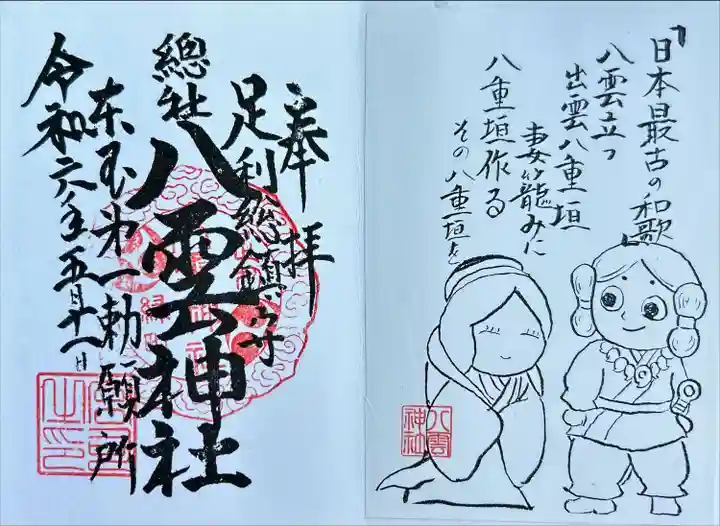 奉拝
足利總鎮守
總社
八雲神社
東国第一勅願所
令和六年五月
「日本最古の和歌」
八雲立つ
出雲八重垣
妻籠みに
八重垣作る
その八重垣を
八雲
神社